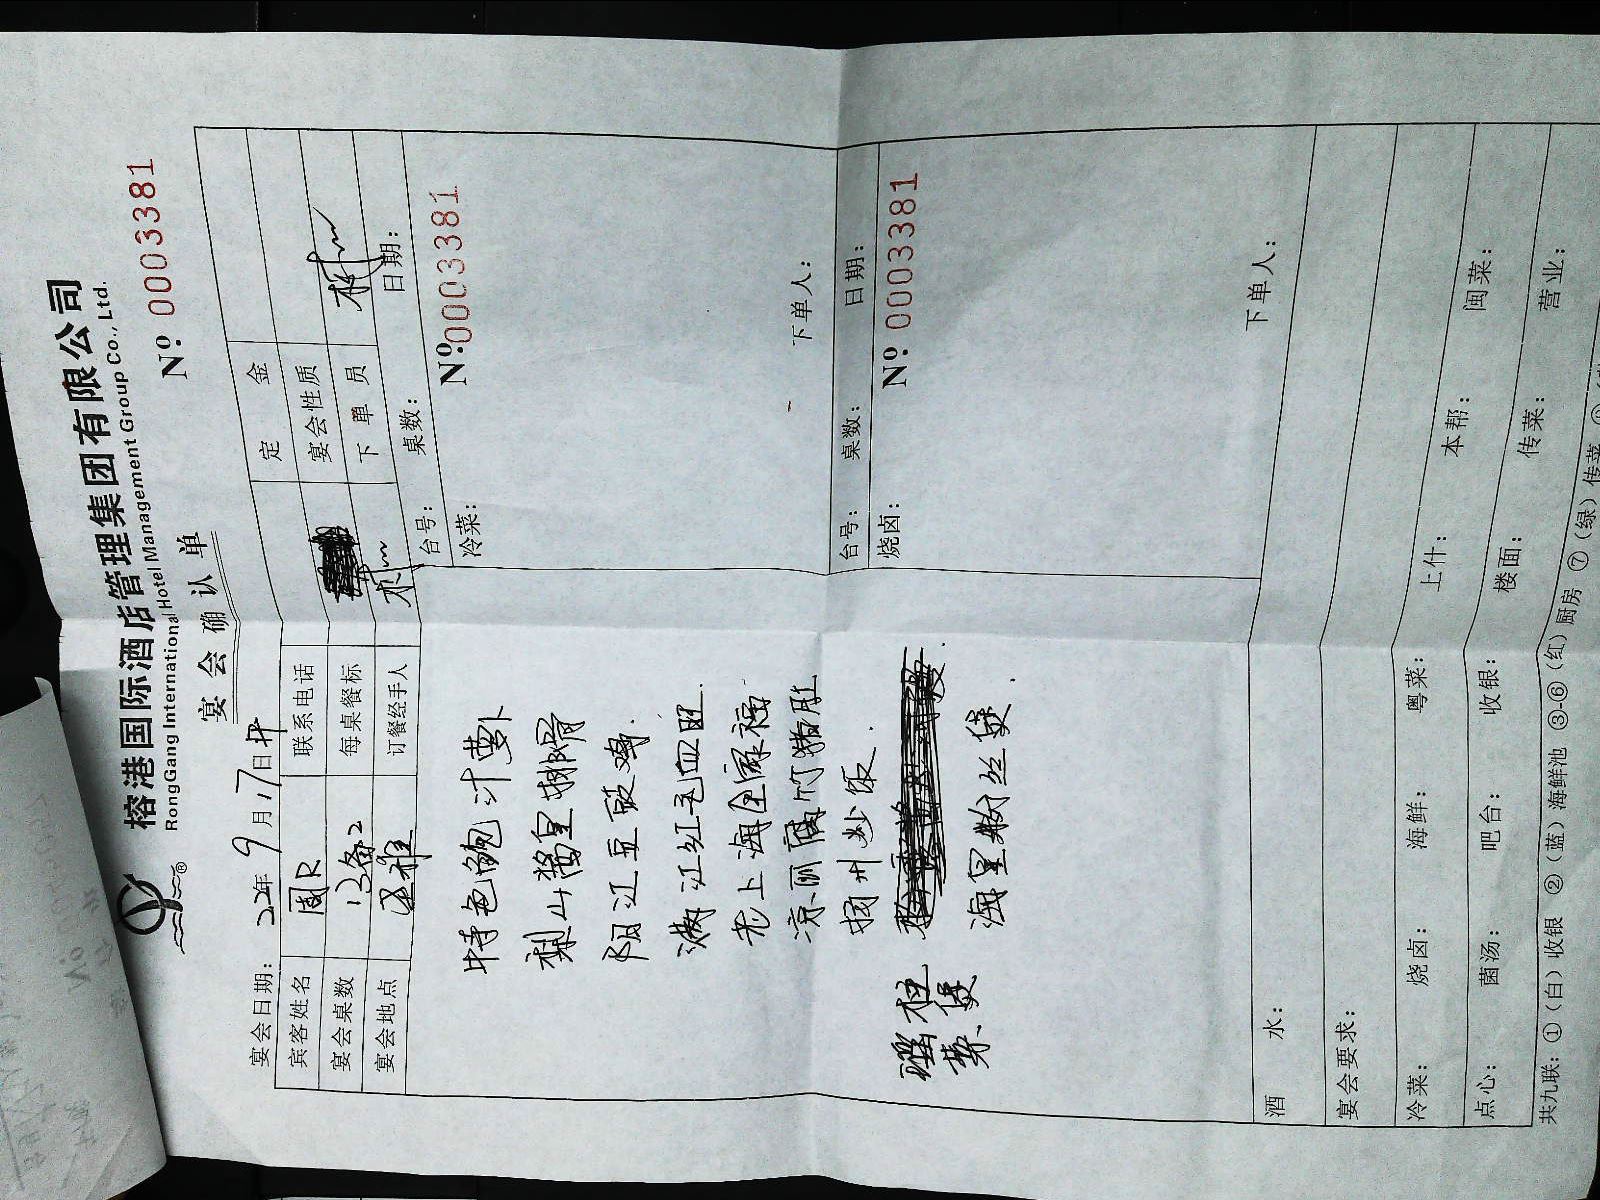 榕港国际酒店管理集团有限公司
RongGang International Hotel Management Group Co., Ltd.
®
宴会确认单
Nº 0003381
宴会日期: 22年 9月17日 定金
宾客姓名 联系电话 宴会性质
宴会桌数 每桌餐标 下单员
宴会地点 订餐经手人
台号: 桌数: 日期:
冷菜: Nº 0003381
特色鲍汁萝卜
梨山酱皇排骨
阳江豆豉鸡.
漓江红毛血旺.
老上海全家福
凉瓜腐竹猪肚
扬州炒饭.
海皇粉丝煲.
下单人:
台号: 桌数: 日期:
烧卤: Nº 0003381
下单人:
酒水:
宴会要求:
冷菜: 烧卤: 海鲜: 粤菜: 上什: 本帮: 闽菜:
点心: 菌汤: 吧台: 收银: 楼面: 传菜: 营业:
共九联: ①(白)收银 ②(蓝)海鲜池 ③-⑥(红)厨房 ⑦(绿)传菜